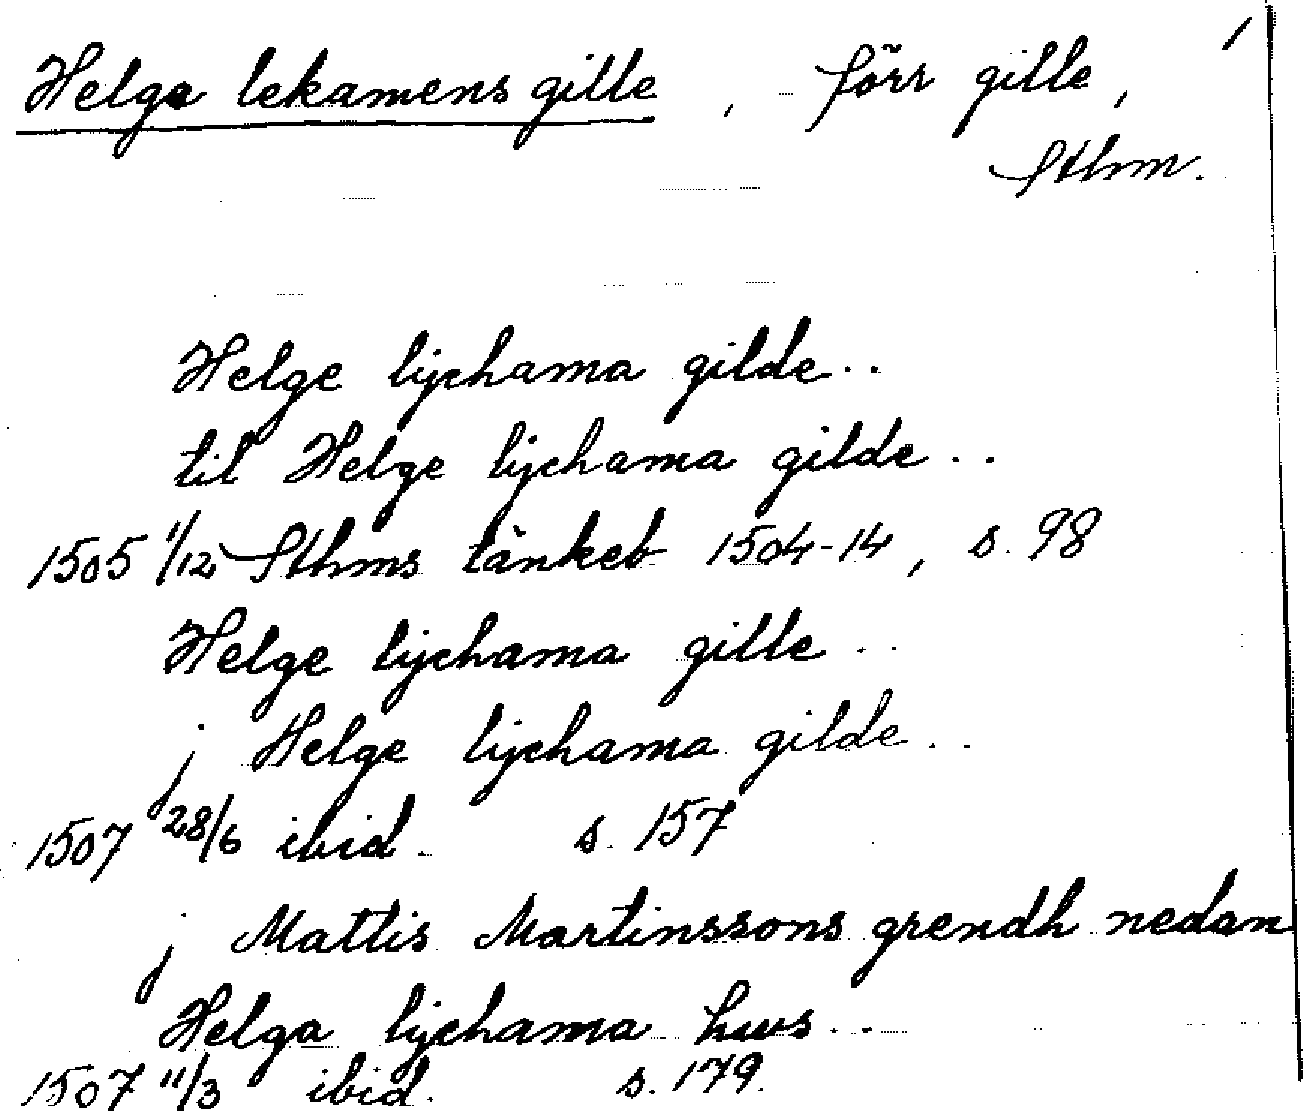 Helga lekamens gille, förr gille,
Sthm.
Helge lijchama gilde..
til Helge lijchama gilde..
1505 1/12 Sthms tänkeb 1504-14, s. 98
Helge lijchama gille..
j Helge lijchama gilde..
1507 28/6 ibid. s. 157
j Mattis Martinssons grendh nedan
Helga lijchama hws..
1507 11/3 ibid. s. 179.